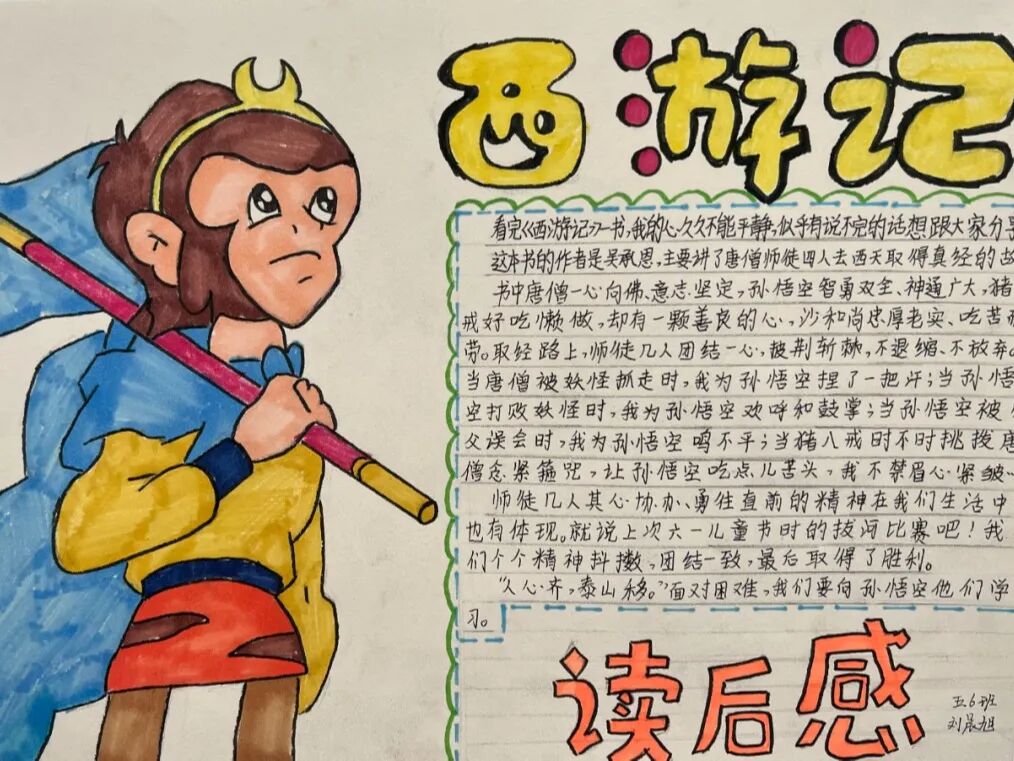 西游记
看完《西游记》一书,我的心久久不能平静,似乎有说不完的话想跟大家分享
这本书的作者是吴承恩,主要讲了唐僧师徒四人去西天取得真经的故
书中唐僧一心向佛、意志坚定,孙悟空智勇双全、神通广大,猪
戒好吃懒做,却有一颗善良的心,沙和尚忠厚老实、吃苦
劳。取经路上,师徒几人团结一心,披荆斩棘,不退缩、不放弃。
当唐僧被妖怪抓走时,我为孙悟空捏了一把汗;当孙悟
空打败妖怪时,我为孙悟空欢呼和鼓掌;当孙悟空被
父误会时,我为孙悟空鸣不平;当猪八戒时不时挑拨唐
僧念紧箍咒,让孙悟空吃点儿苦头,我不禁眉心紧皱…
师徒几人其心协办、勇往直前的精神在我们生活中
也有体现。就说上次六一儿童节时的拔河比赛吧!我
们个个精神抖擞,团结一致,最后取得了胜利。
“人心齐,泰山移。”面对困难,我们要向孙悟空他们学
习。
读后感
五6班
刘晨旭